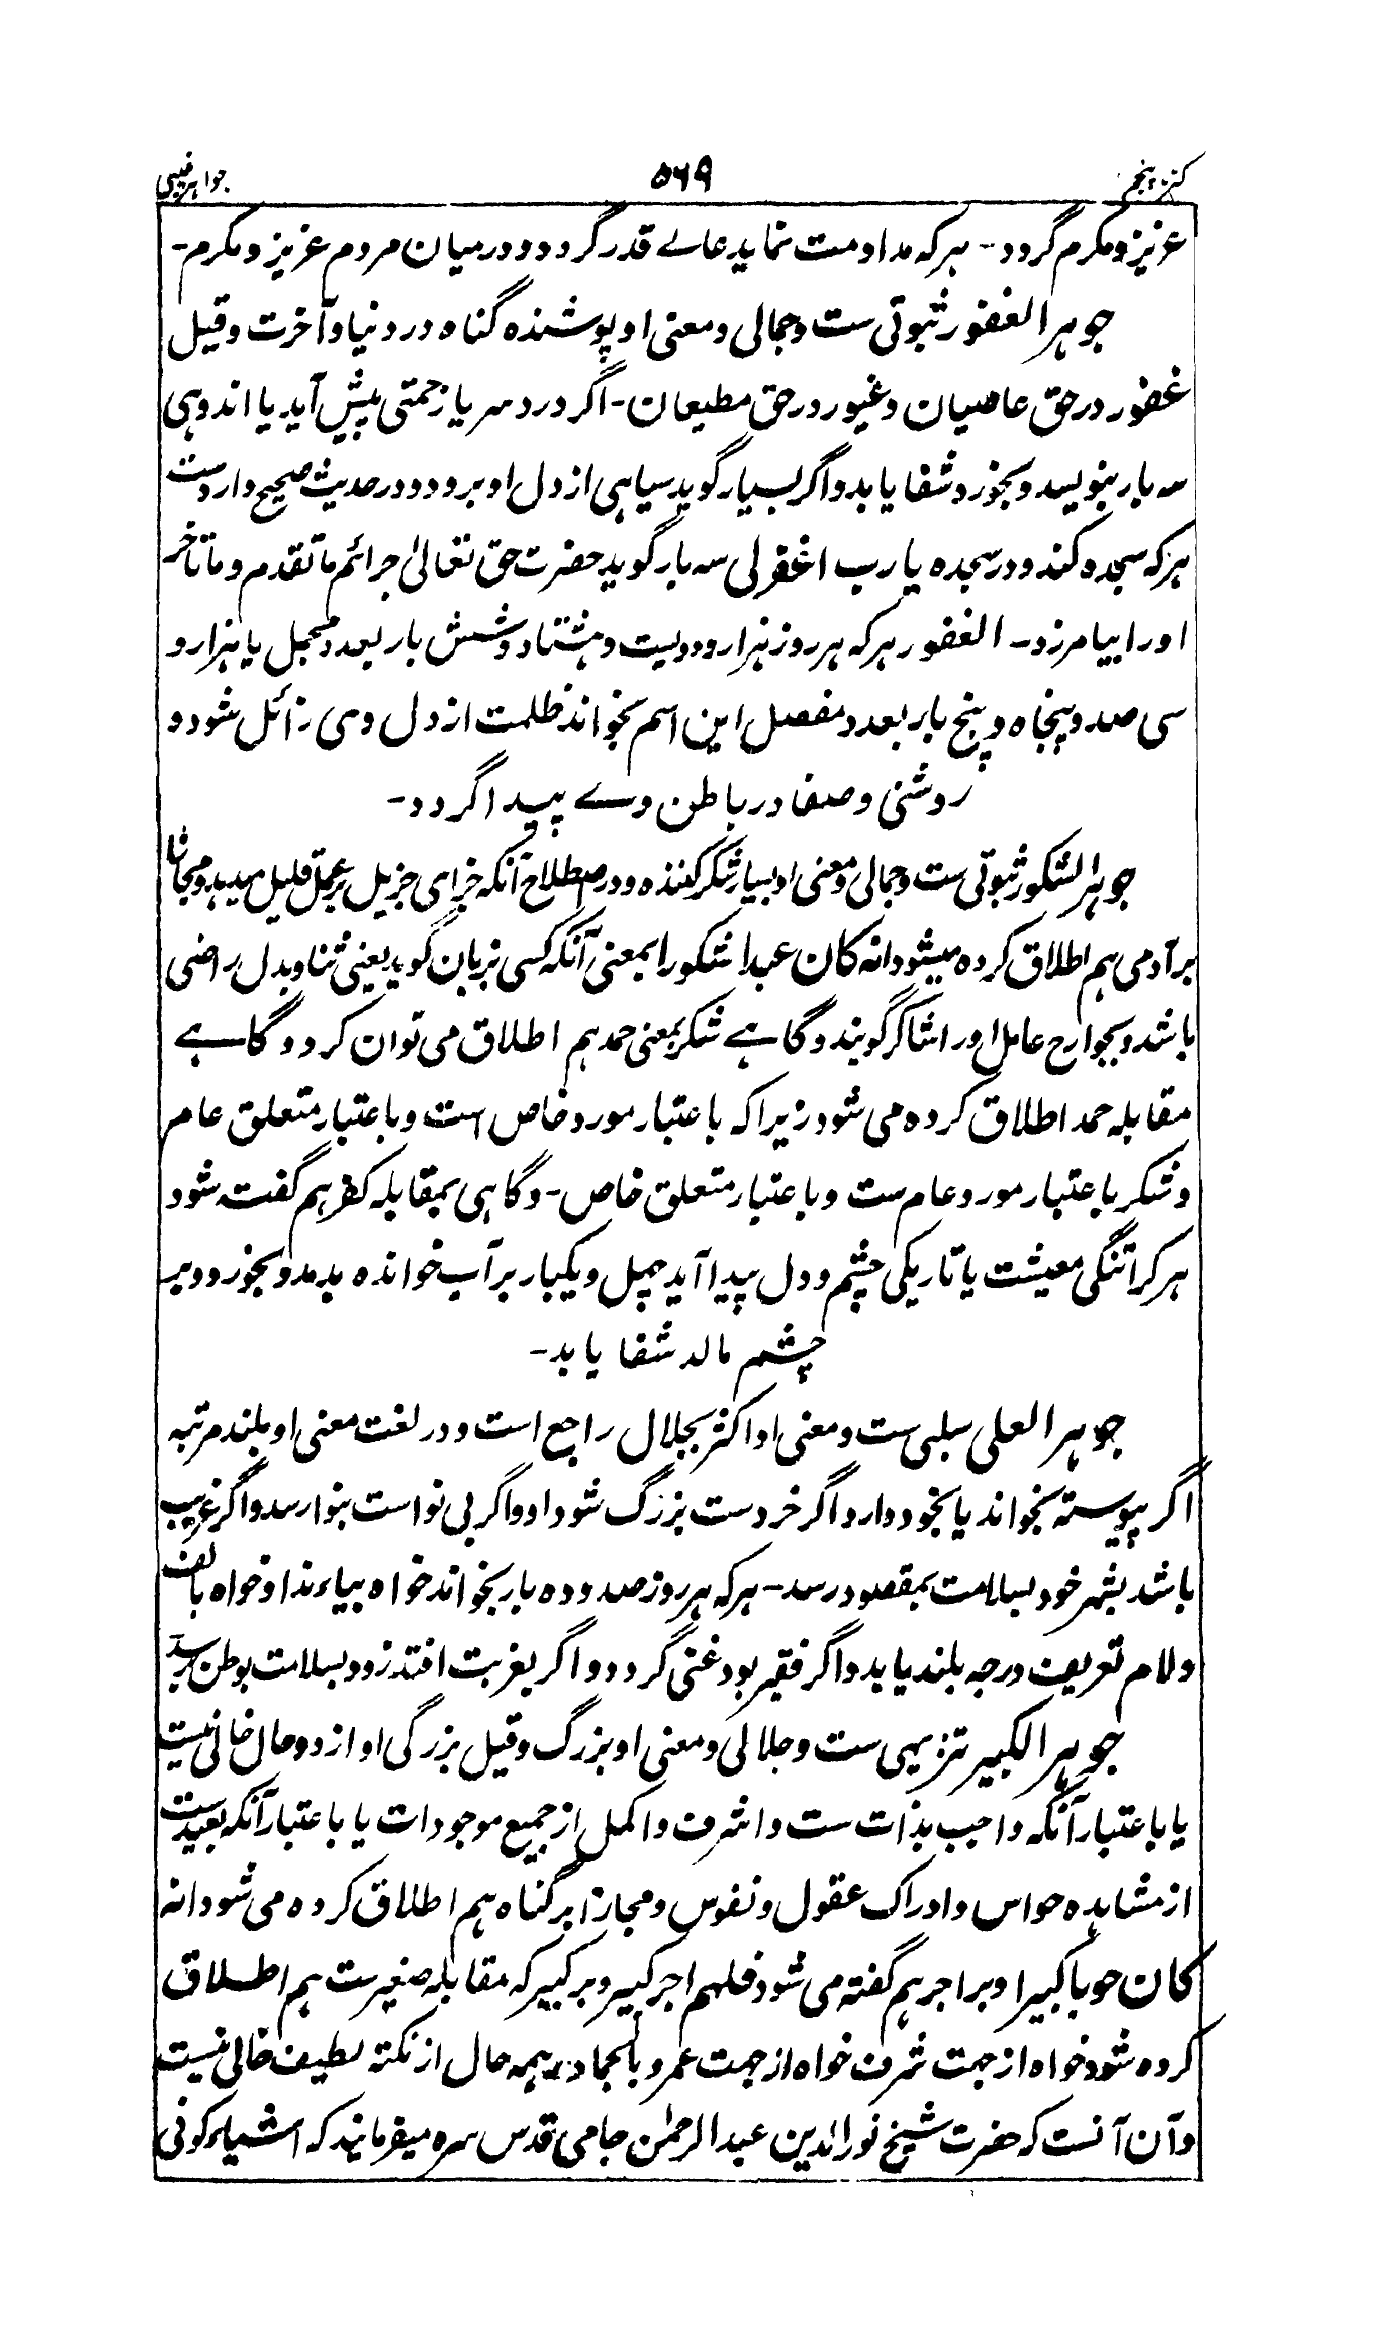 کنز پنجم
۵۶۹
جواہر غیبی
عزیز و مکرم گردد - ہرکہ مداومت نماید عالے قدر گردد و درمیان مردم عزیز و مکرم -
جوہر الغفور ثبوتی ست و جمالی و معنی او پوشندہ گناہ در دنیا و آخرت و قیل
غفور در حق عاصیان و غیور در حق مطیعان - اگر درد سر یا زحمتی پیش آید یا اندوہی
سہ بار بنویسد و بخورد شفا یابد و اگر بسیار گوید سیاہی از دل او برود و در حدیث صحیح واردست
ہرکہ سجدہ کند و در سجدہ یا رب اغفرلی سہ بار گوید حضرت حق تعالیٰ جرائم ما تقدم و ما تأخر
اورا بیامرزد - الغفور ہرکہ ہر روز ہزار و دویست و ہشتاد و شش بار بعدد مجمل یا ہزار و
سی صد و پنجاہ و پنج بار بعدد مفصل این اسم بخواند ظلمت از دل وی زائل شود و
روشنی و صفا در باطن وے پیدا گردد -
جوہر الشکور ثبوتی ست و جمالی و معنی او بسیار شکر کنندہ و در اصطلاح آنکہ جزای جزیل بر عمل قلیل میدہد و مجازا
بر آدمی ہم اطلاق کردہ میشود انہ کان عبدا شکورا بمعنی آنکہ کسی بزبان گوید یعنی ثنا و بدل راضی
باشد و بجوارح عامل اورا شاکر گویند و گاہے شکر بمعنی حمد ہم اطلاق می توان کرد و گاہے
مقابلہ حمد اطلاق کردہ می شود زیرا کہ باعتبار مورد خاص است و باعتبار متعلق عام
و شکر باعتبار مورد عام ست و باعتبار متعلق خاص - و گاہی بمقابلہ کفر ہم گفتہ شود
ہر کرا تنگی معیشت یا تاریکی چشم و دل پیدا آید چہل و یکبار بر آب خواندہ بدمد و بخورد و بر
چشم مالد شفا یابد -
جوہر العلی سلبی ست و معنی او اکثر بجلال راجع است و در لغت معنی او بلند مرتبہ
اگر پیوستہ بخواند یا بخود دارد اگر خردست بزرگ شود او و اگر بی نواست بنوا رسد و اگر غریب
باشد بشہر خود بسلامت بمقصود رسد - ہرکہ ہر روز صد و دہ بار بخواند خواہ بیاء ندا و خواہ بالف
و لام تعریف درجہ بلند یابد و اگر فقیر بود غنی گردد و اگر بغربت افتد زود بسلامت بوطن رسد
جوہر الکبیر تنزیہی ست و جلالی و معنی او بزرگ و قیل بزرگی او از دو حال خالی نیست
یا باعتبار آنکہ واجب بذات ست و اشرف و اکمل از جمیع موجودات یا باعتبار آنکہ بعیدست
از مشاہدہ حواس و ادراک عقول و نفوس و مجازا بر گناہ ہم اطلاق کردہ می شود انہ
کان حوبا کبیرا و بر اجر ہم گفتہ می شود فلہم اجر کبیر و بر کبیر کہ مقابلہ صغیرست ہم اطلاق
کردہ شود خواہ از جہت شرف خواہ از جہت عمر و بالجملہ در ہمہ حال از نکتہ لطیف خالی نیست
و آن آنست کہ حضرت شیخ نور الدین عبدالرحمٰن جامی قدس سرہ میفرمایند کہ اشیاء کونی